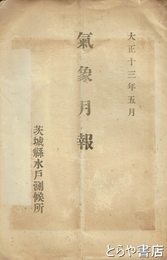 大正十三年五月
氣象月報
茨城縣水戸測候所
古書
とらや書店